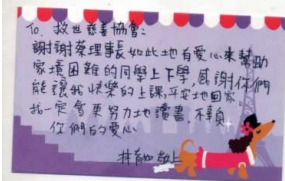 To. 救世慈善協會:
謝謝蔡理事長如此地有愛心來幫助
家境困難的同學上下學,感謝你們
能讓我快樂的上課,平安地回家
我一定會更努力地讀書,不負
你們的愛心
林 敬上